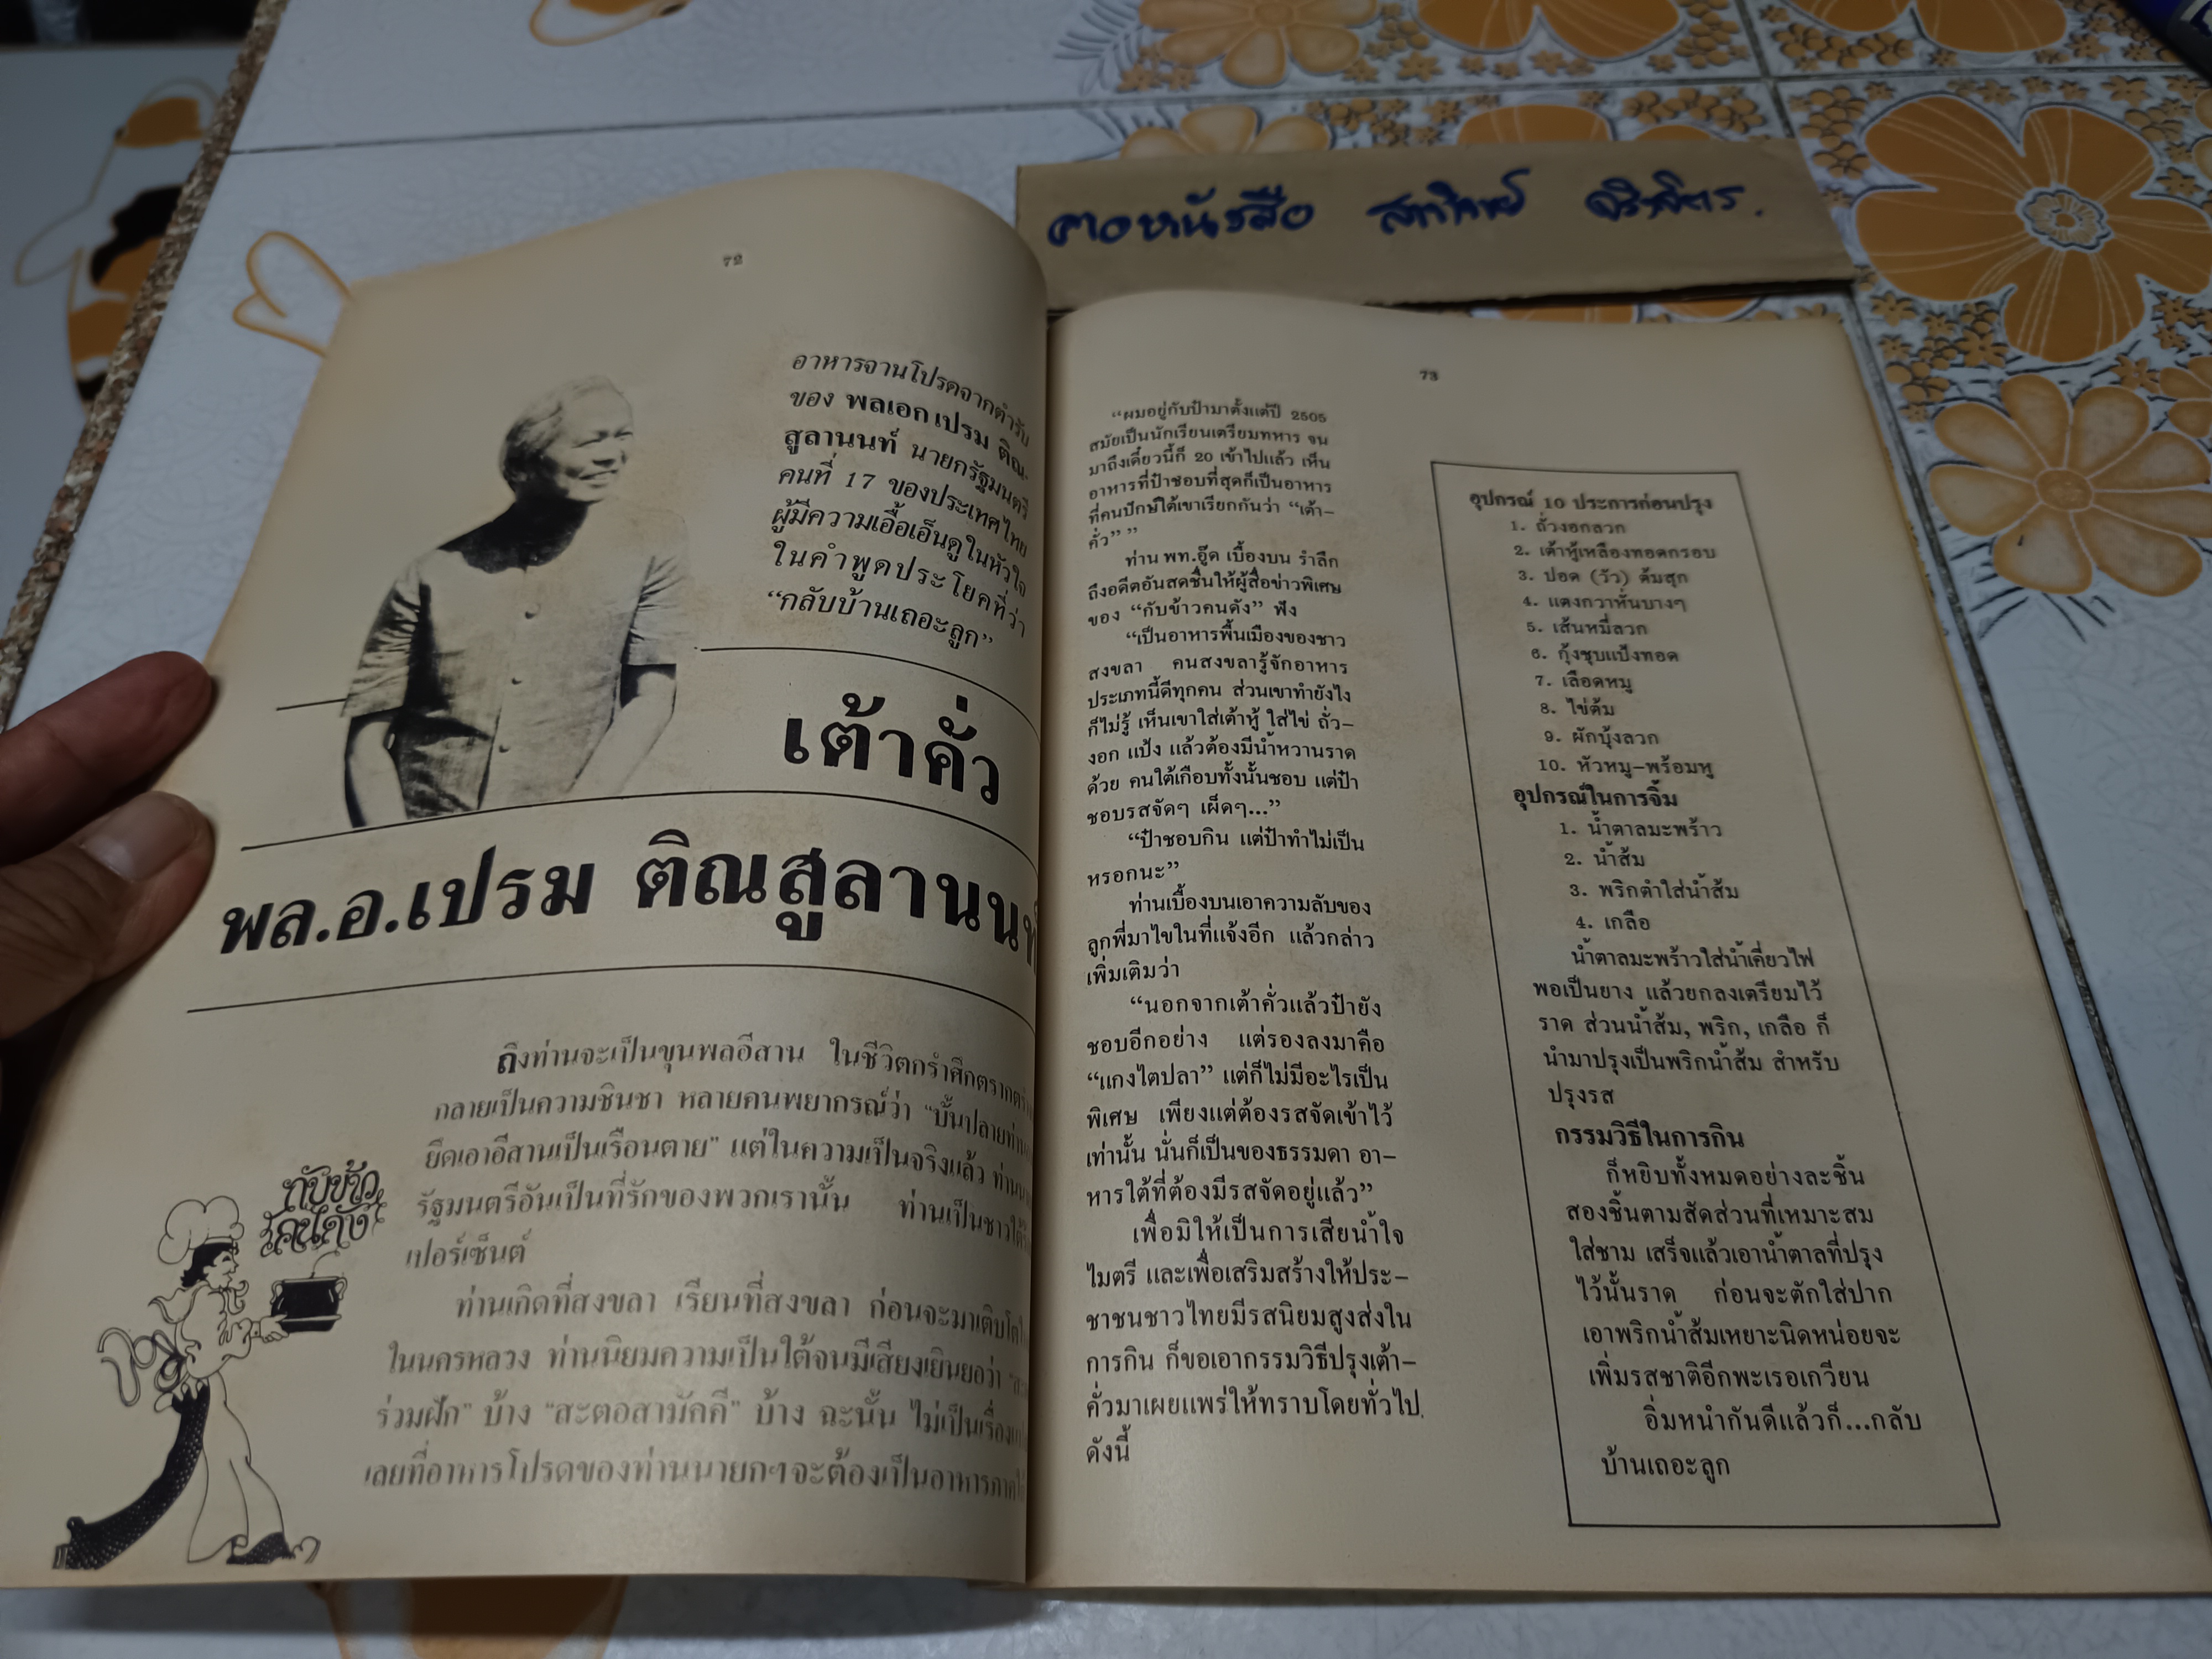 72
อาหารจานโปรดจากตำรับ
ของ พลเอก เปรม ติณ-
สูลานนท์ นายกรัฐมนตรี
คนที่ 17 ของประเทศไทย
ผู้มีความเอื้อเอ็นดูในหัวใจ
ในคำพูดประโยคที่ว่า
“กลับบ้านเถอะลูก”
เต้าคั่ว
พล.อ.เปรม ติณสูลานนท์
ถึงท่านจะเป็นขุนพลอีสาน ในชีวิตกรำศึกตรากตรำ
กลายเป็นความชินชา หลายคนพยากรณ์ว่า “บั้นปลายท่าน
ยึดเอาอีสานเป็นเรือนตาย” แต่ในความเป็นจริงแล้ว
รัฐมนตรีอันเป็นที่รักของพวกเรานั้น ท่านเป็นชาวใต้
เปอร์เซ็นต์
ท่านเกิดที่สงขลา เรียนที่สงขลา ก่อนจะมาเติบโต
ในนครหลวง ท่านนิยมความเป็นใต้จนมีเสียงเยินยอว่า
ร่วมฝัก” บ้าง “สะตอสามัคคี” บ้าง ฉะนั้น ไม่เป็นเรื่อง
เลยที่อาหารโปรดของท่านนายกฯจะต้องเป็นอาหารภาคใต้
กับข้าว
คนดัง
ตอหนังสือ
73
“ผมอยู่กับป๋ามาตั้งแต่ปี 2505
สมัยเป็นนักเรียนเตรียมทหาร จน
มาถึงเดี๋ยวนี้ก็ 20 เข้าไปแล้ว เห็น
อาหารที่ป๋าชอบที่สุดก็เป็นอาหาร
ที่คนปักษ์ใต้เขาเรียกกันว่า “เต้า-
คั่ว” ”
ท่าน พท.อู๊ด เบื้องบน รำลึก
ถึงอดีตอันสดชื่นให้ผู้สื่อข่าวพิเศษ
ของ “กับข้าวคนดัง” ฟัง
“เป็นอาหารพื้นเมืองของชาว
สงขลา คนสงขลารู้จักอาหาร
ประเภทนี้ดีทุกคน ส่วนเขาทำยังไง
ก็ไม่รู้ เห็นเขาใส่เต้าหู้ ใส่ไข่ ถั่ว-
งอก แป้ง แล้วต้องมีน้ำหวานราด
ด้วย คนใต้เกือบทั้งนั้นชอบ แต่ป๋า
ชอบรสจัดๆ เผ็ดๆ...”
“ป๋าชอบกิน แต่ป๋าทำไม่เป็น
หรอกนะ”
ท่านเบื้องบนเอาความลับของ
ลูกพี่มาไขในที่แจ้งอีก แล้วกล่าว
เพิ่มเติมว่า
“นอกจากเต้าคั่วแล้วป๋ายัง
ชอบอีกอย่าง แต่รองลงมาคือ
“แกงไตปลา” แต่ก็ไม่มีอะไรเป็น
พิเศษ เพียงแต่ต้องรสจัดเข้าไว้
เท่านั้น นั่นก็เป็นของธรรมดา อา-
หารใต้ที่ต้องมีรสจัดอยู่แล้ว”
เพื่อมิให้เป็นการเสียน้ำใจ
ไมตรี และเพื่อเสริมสร้างให้ประ-
ชาชนชาวไทยมีรสนิยมสูงส่งใน
การกิน ก็ขอเอากรรมวิธีปรุงเต้า-
คั่วมาเผยแพร่ให้ทราบโดยทั่วไป.
ดังนี้
อุปกรณ์ 10 ประการก่อนปรุง
1. ถั่วงอกลวก
2. เต้าหู้เหลืองทอดกรอบ
3. ปอด (วัว) ต้มสุก
4. แตงกวาหั่นบางๆ
5. เส้นหมี่ลวก
6. กุ้งชุบแป้งทอด
7. เลือดหมู
8. ไข่ต้ม
9. ผักบุ้งลวก
10. หัวหมู-พร้อมหู
อุปกรณ์ในการจิ้ม
1. น้ำตาลมะพร้าว
2. น้ำส้ม
3. พริกตำใส่น้ำส้ม
4. เกลือ
น้ำตาลมะพร้าวใส่น้ำเคี่ยวไฟ
พอเป็นยาง แล้วยกลงเตรียมไว้
ราด ส่วนน้ำส้ม, พริก, เกลือ ก็
นำมาปรุงเป็นพริกน้ำส้ม สำหรับ
ปรุงรส
กรรมวิธีในการกิน
ก็หยิบทั้งหมดอย่างละชิ้น
สองชิ้นตามสัดส่วนที่เหมาะสม
ใส่ชาม เสร็จแล้วเอาน้ำตาลที่ปรุง
ไว้นั้นราด ก่อนจะตักใส่ปาก
เอาพริกน้ำส้มเหยาะนิดหน่อยจะ
เพิ่มรสชาติอีกพะเรอเกวียน
อิ่มหนำกันดีแล้วก็...กลับ
บ้านเถอะลูก